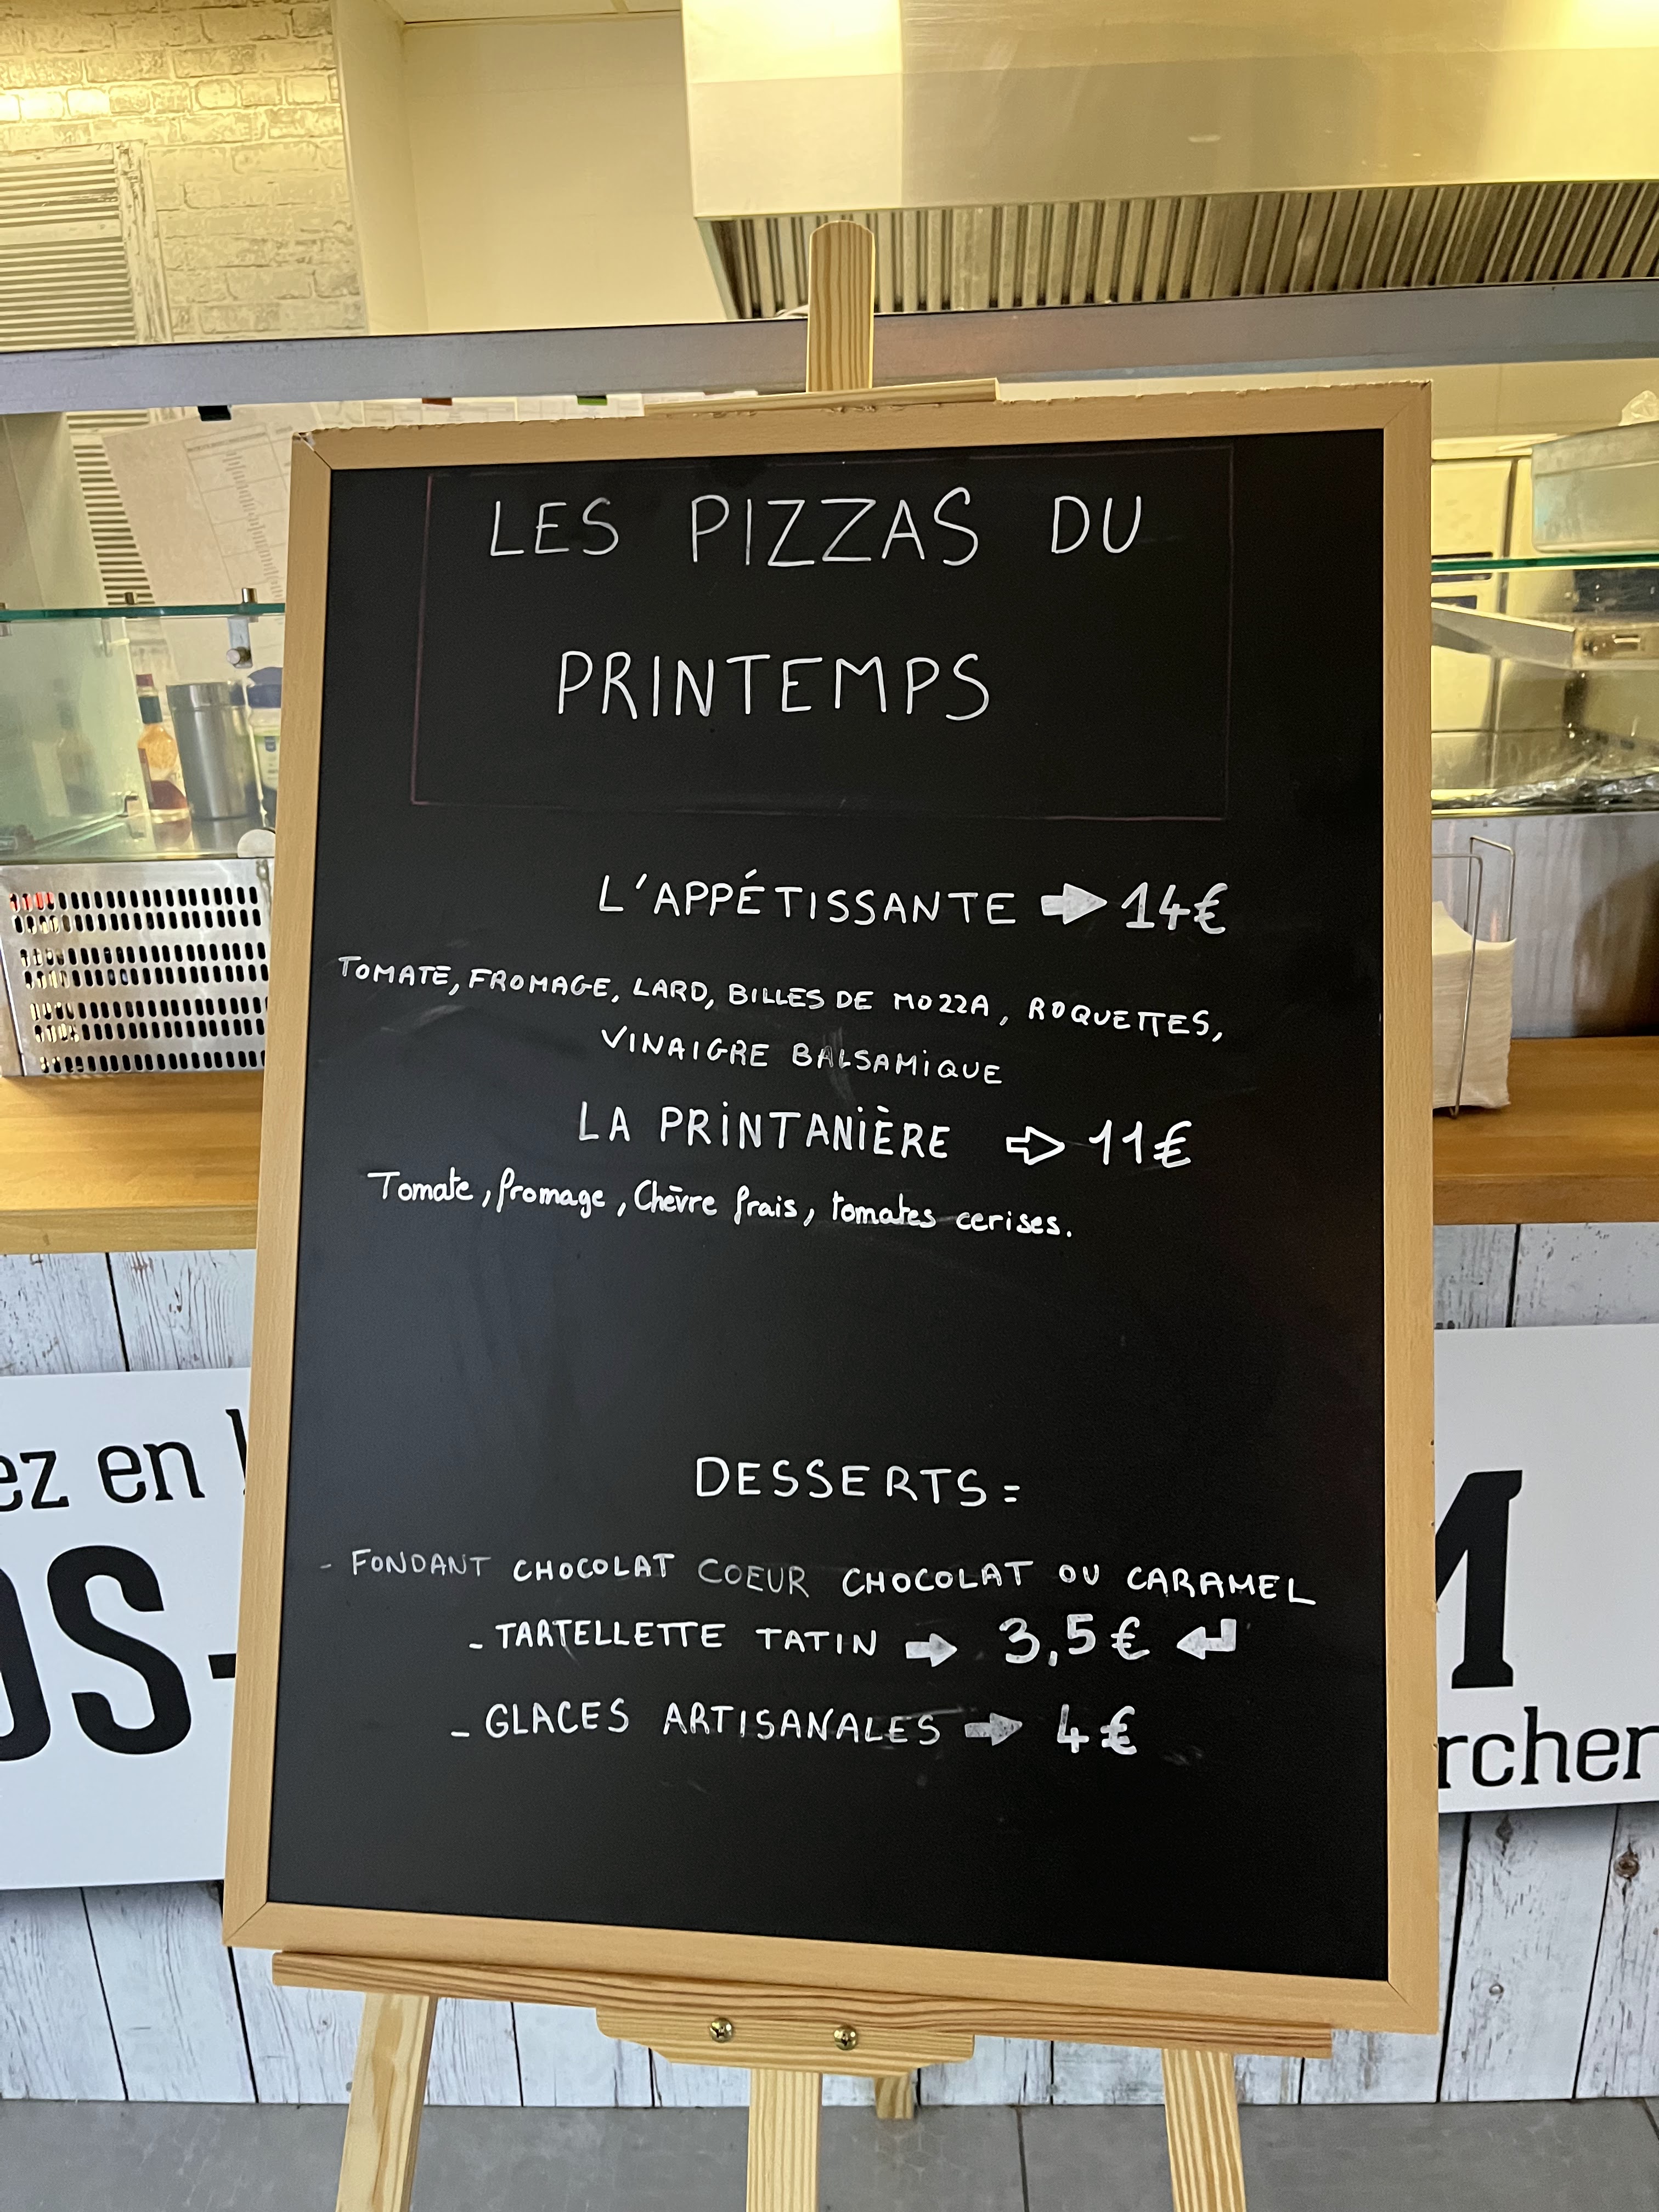 LES PIZZAS DU
PRINTEMPS
L'APPÉTISSANTE ➡ 14€
TOMATE, FROMAGE, LARD, BILLES DE MOZZA, ROQUETTES,
VINAIGRE BALSAMIQUE
LA PRINTANIÈRE ⇨ 11€
Tomate, fromage, Chèvre frais, tomates cerises.
DESSERTS =
- FONDANT CHOCOLAT COEUR CHOCOLAT OU CARAMEL
- TARTELLETTE TATIN ➡ 3,5€ ↵
- GLACES ARTISANALES ➡ 4€
ez en
OS-
M
rcher